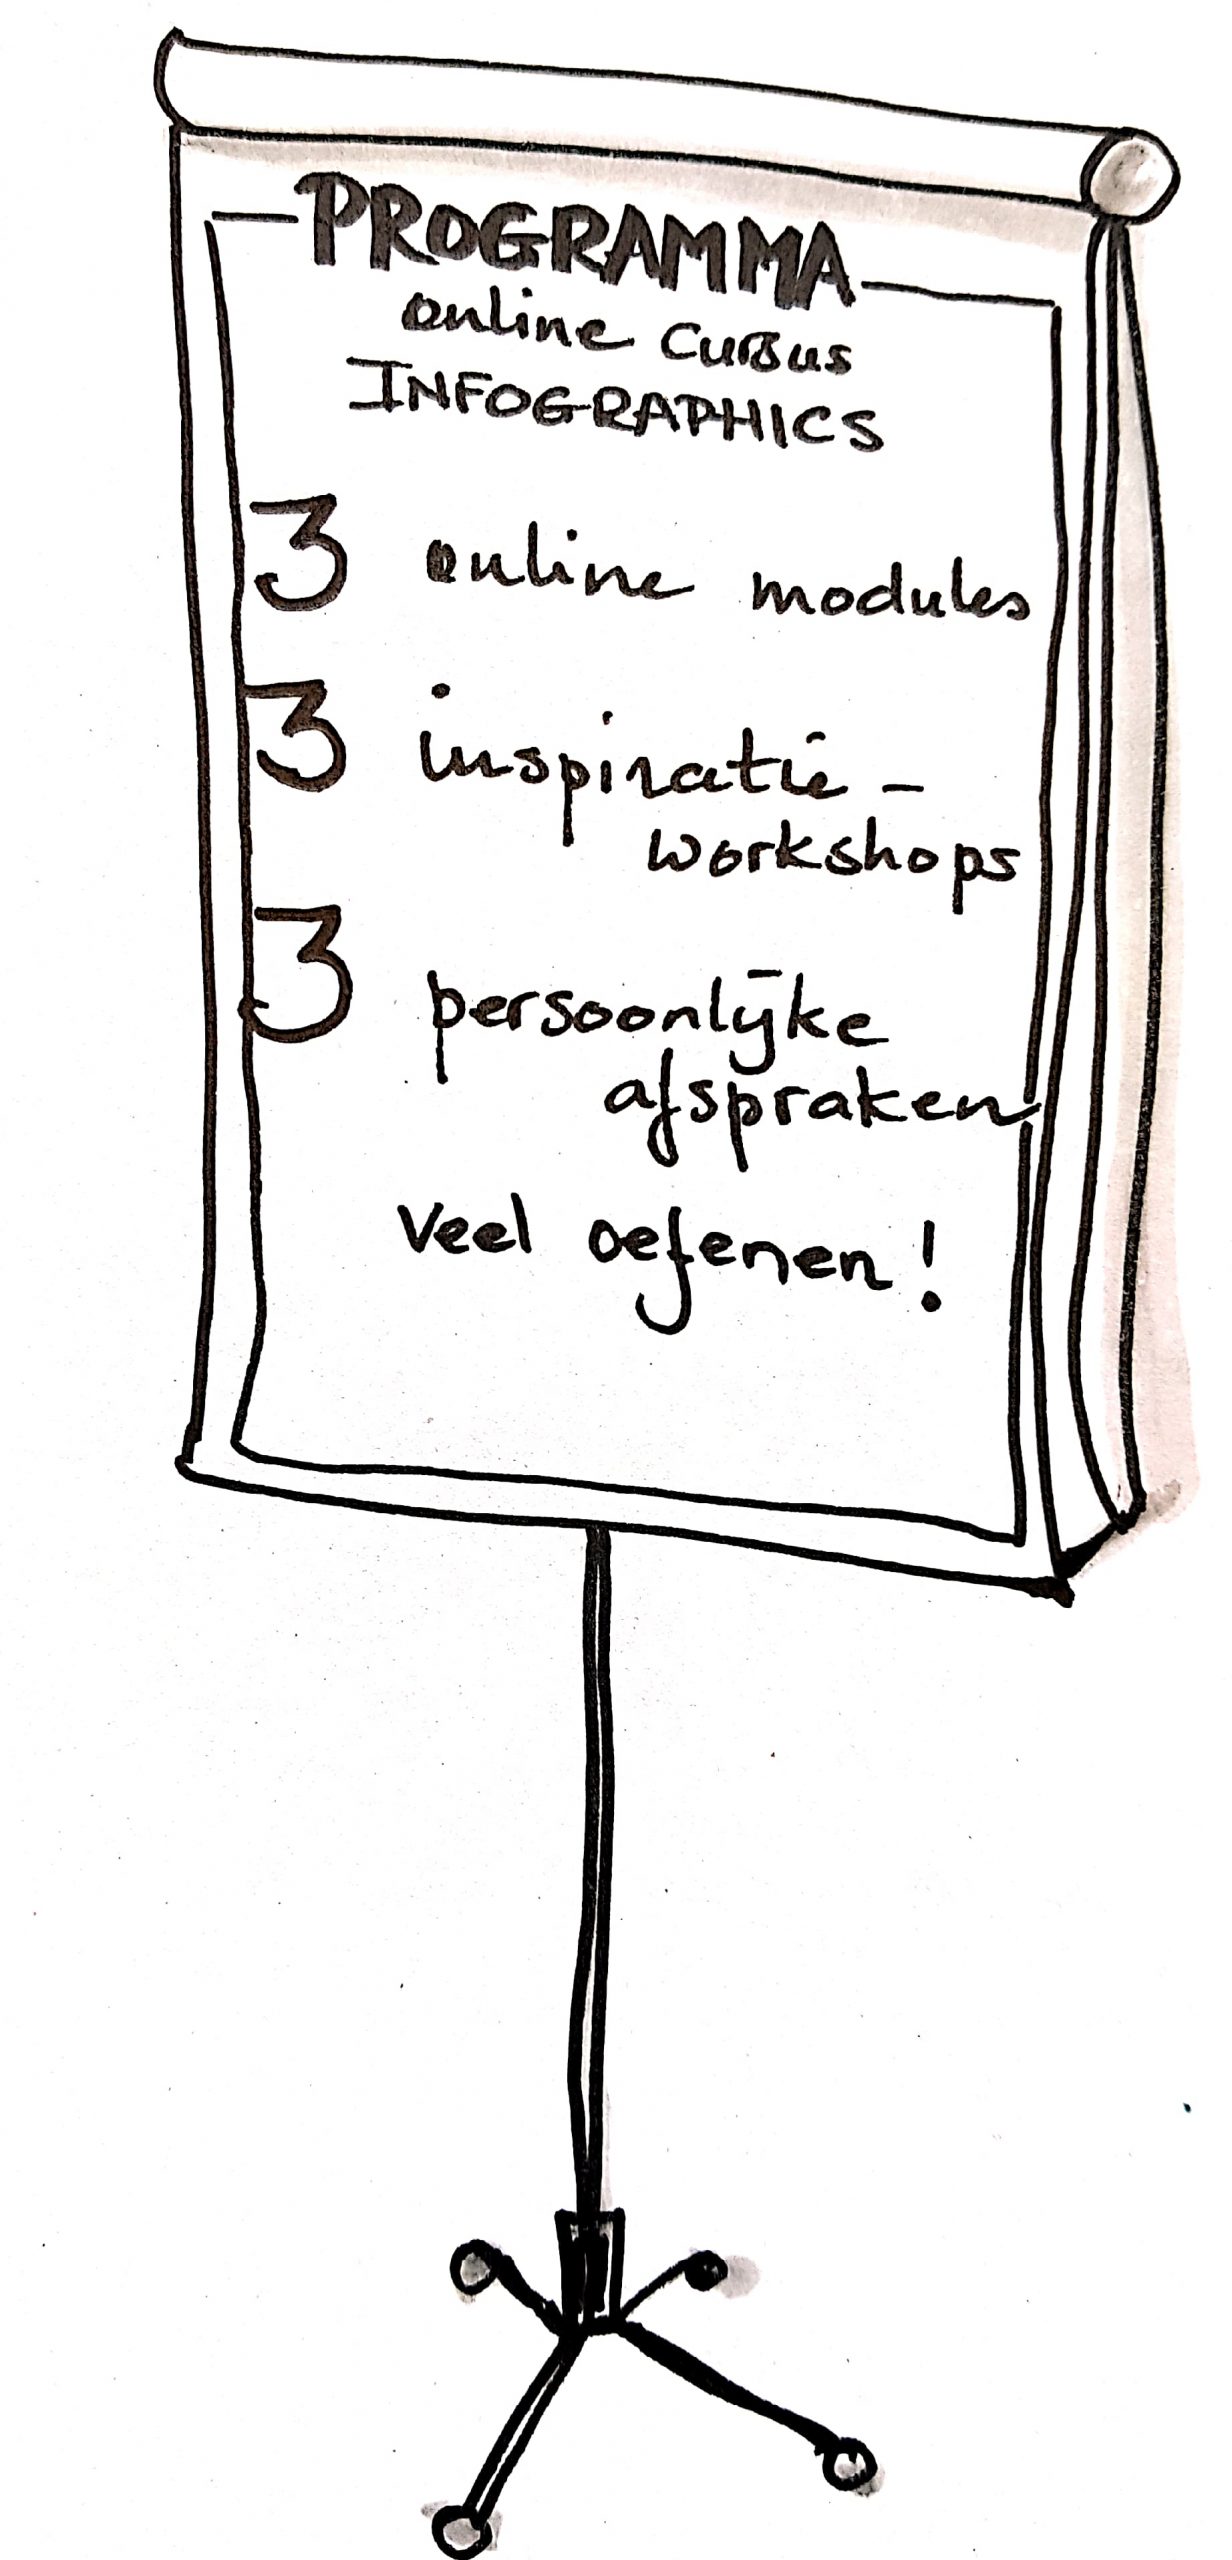 PROGRAMMA
online cursus
INFOGRAPHICS
3 online modules
3 inspiratie-
workshops
3 persoonlijke
afspraken
veel oefenen!